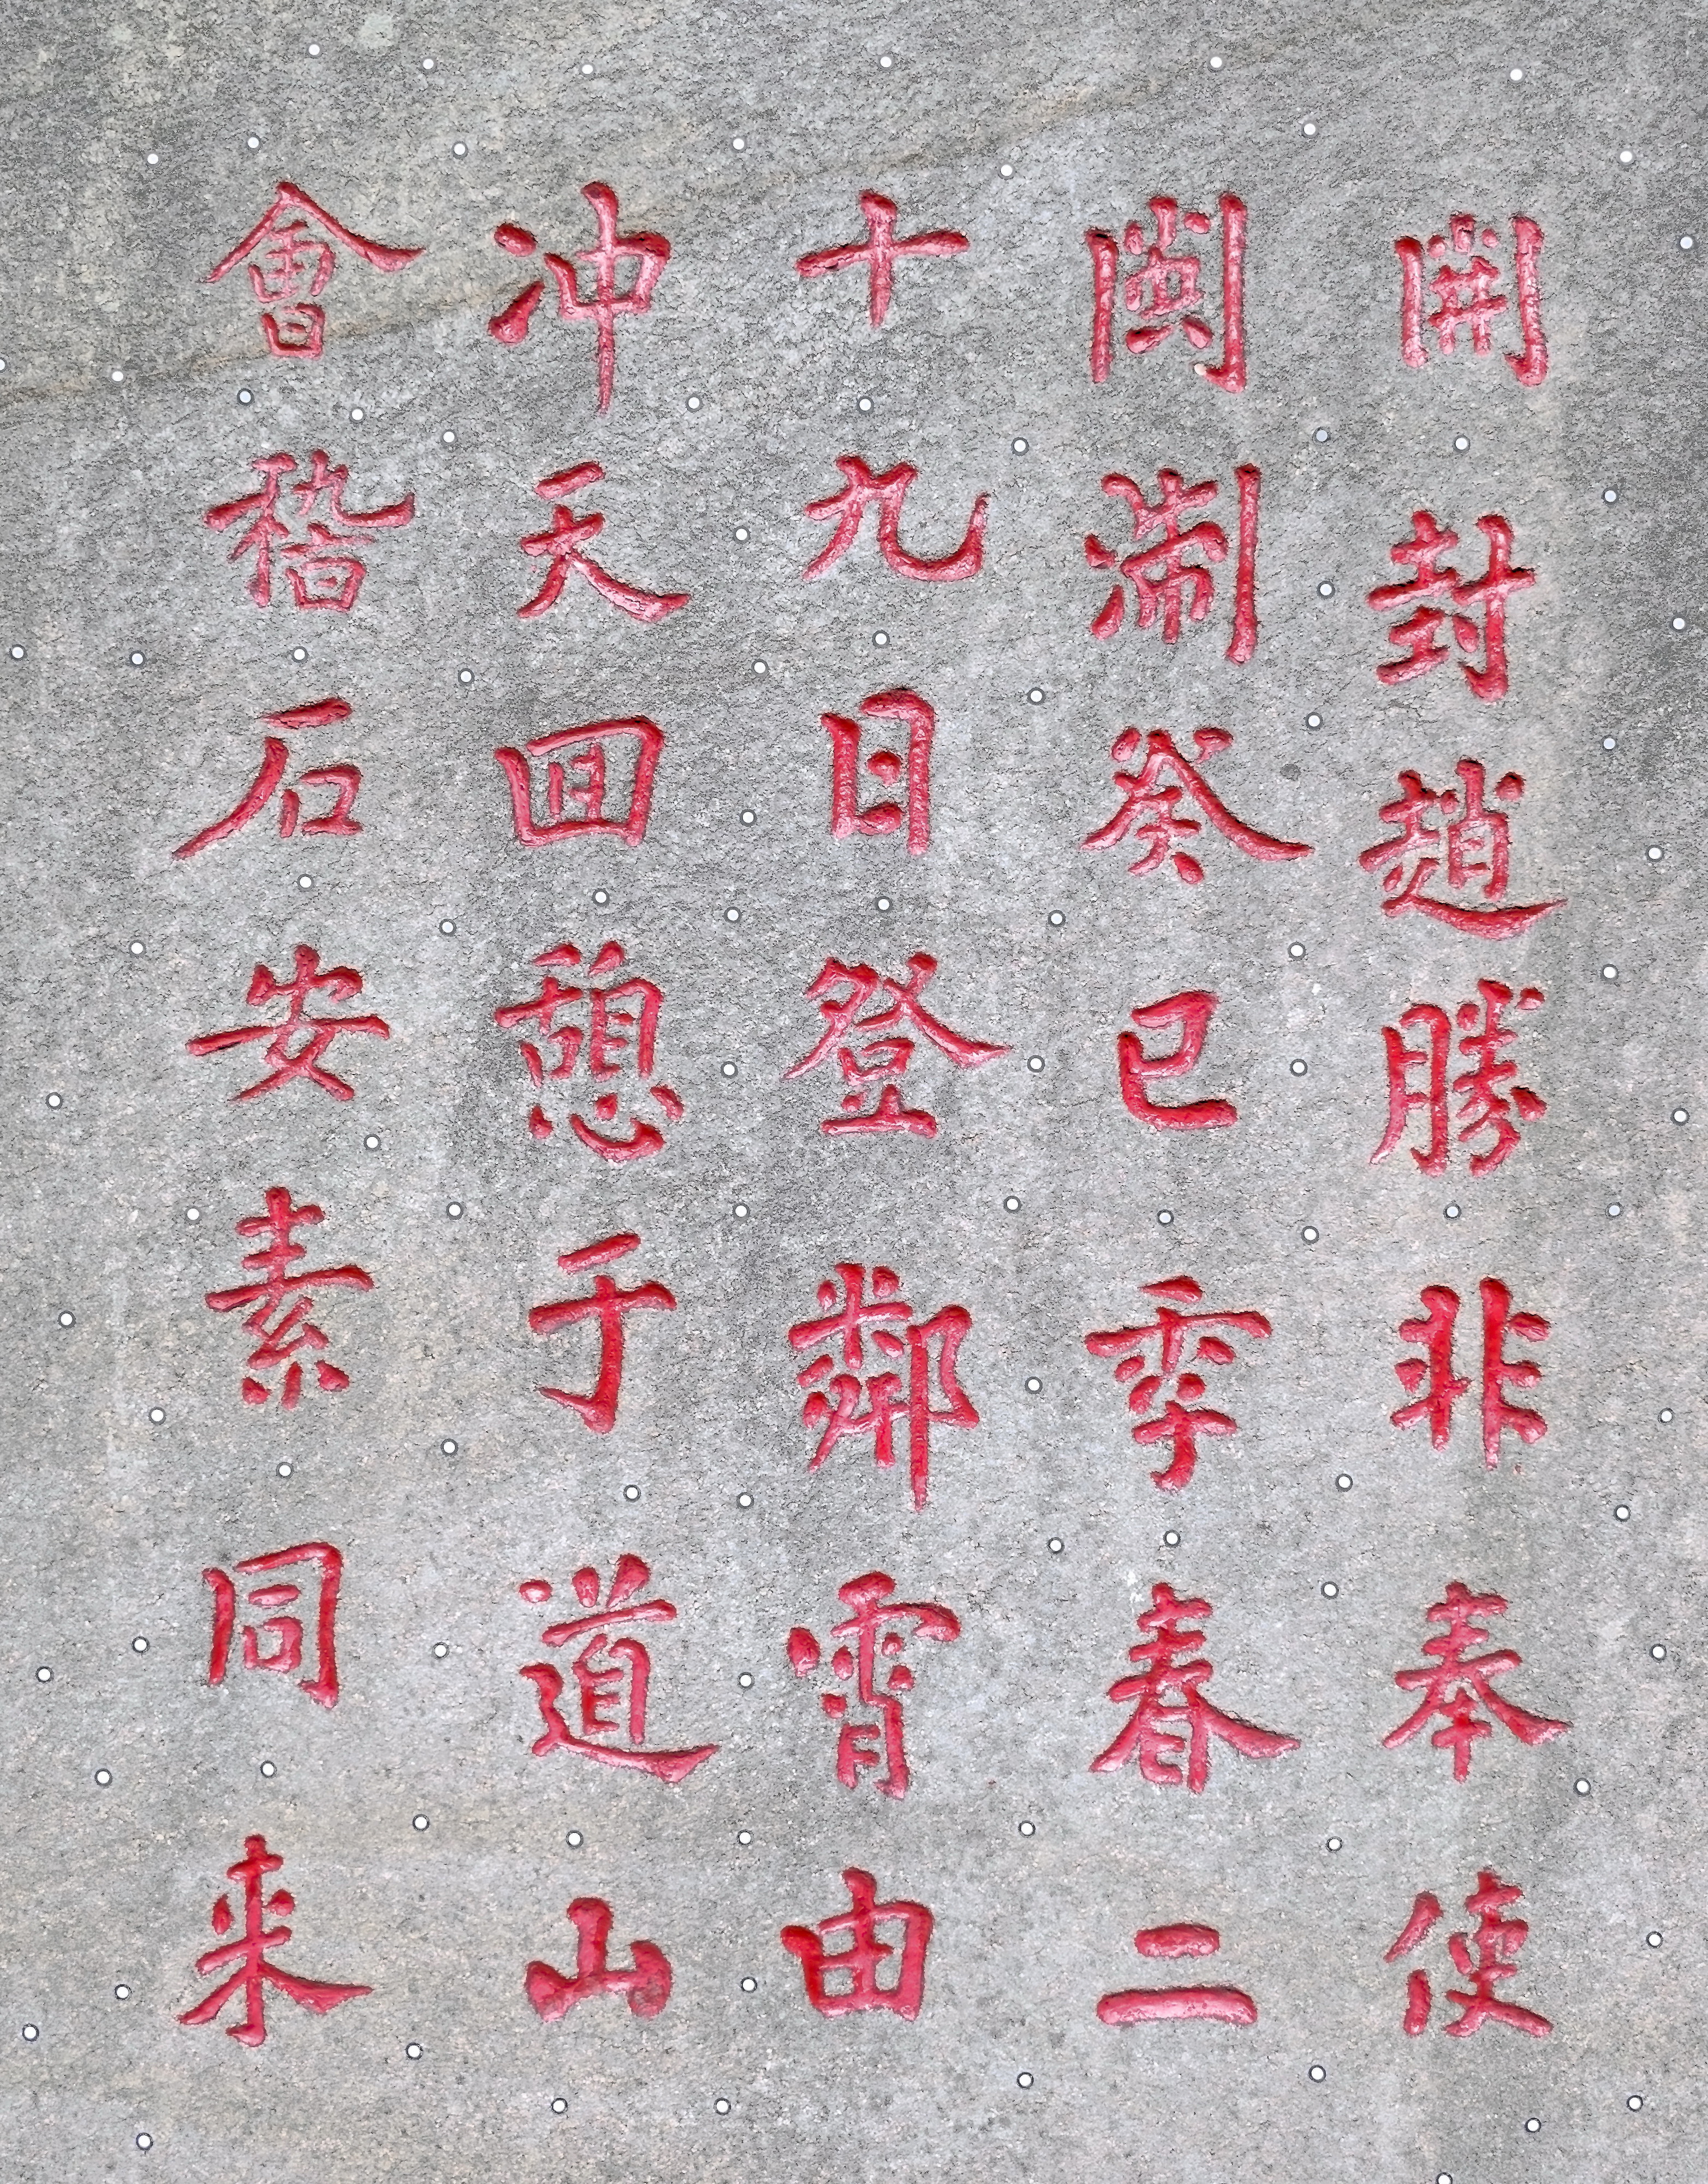 開封趙勝非奉使
閩淛癸巳季春二
十九日登鄰霄由
冲天囬憩于道山
會稽石安素同来